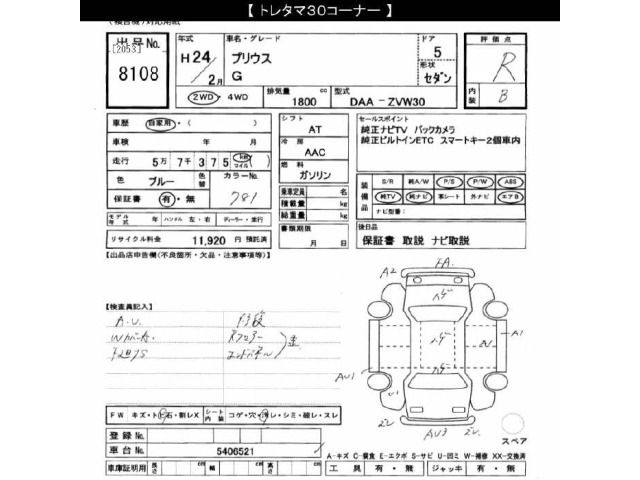 【 トレタマ30コーナー 】
出品No. 年式 車名・グレード ドア 評価点
[2053] H24/2月 プリウス 5 R
8108 G 形状 セダン 内装 B
2WD・4WD 排気量 1800 cc 型式 DAA－ZVW30
車歴 自家用・( ) シフト AT セールスポイント
車検 年 月 冷房 AAC 純正ナビTV バックカメラ
純正ビルトインETC スマートキー2個車内
走行 5万7千375 km マイル 燃料 ガソリン
色 ブルー 色替 カラーNo. 781
保証書 有・無
乗車定員 名
積載量 kg
総重量 kg
装備品 S/R 純A/W P/S P/W ABS
純TV 純ナビ 革シート 外ナビ エアB
ナビ型番:
モデル年式 年 ハンドル 左・右 ディーラー・並行
リサイクル料金 11,920 円 預託済
書類期限 月 日
後日品
保証書 取説 ナビ取説
【出品店申告欄(不良箇所・欠品・注意事項等)】
【検査員記入】
A2 FA
A1
AU1
U1
AU3
FW キズ・トビ石・割レX シート内装 コゲ・穴・汚レ・シミ・破レ・スレ
登録No.
車台No. 5406521
スペア
A-キズ C-腐食 E-エクボ S-サビ U-凹ミ W-補修 XX-交換済
車庫証明用 長さ cm 幅 cm 高さ cm 工具 有・無 ジャッキ 有・無